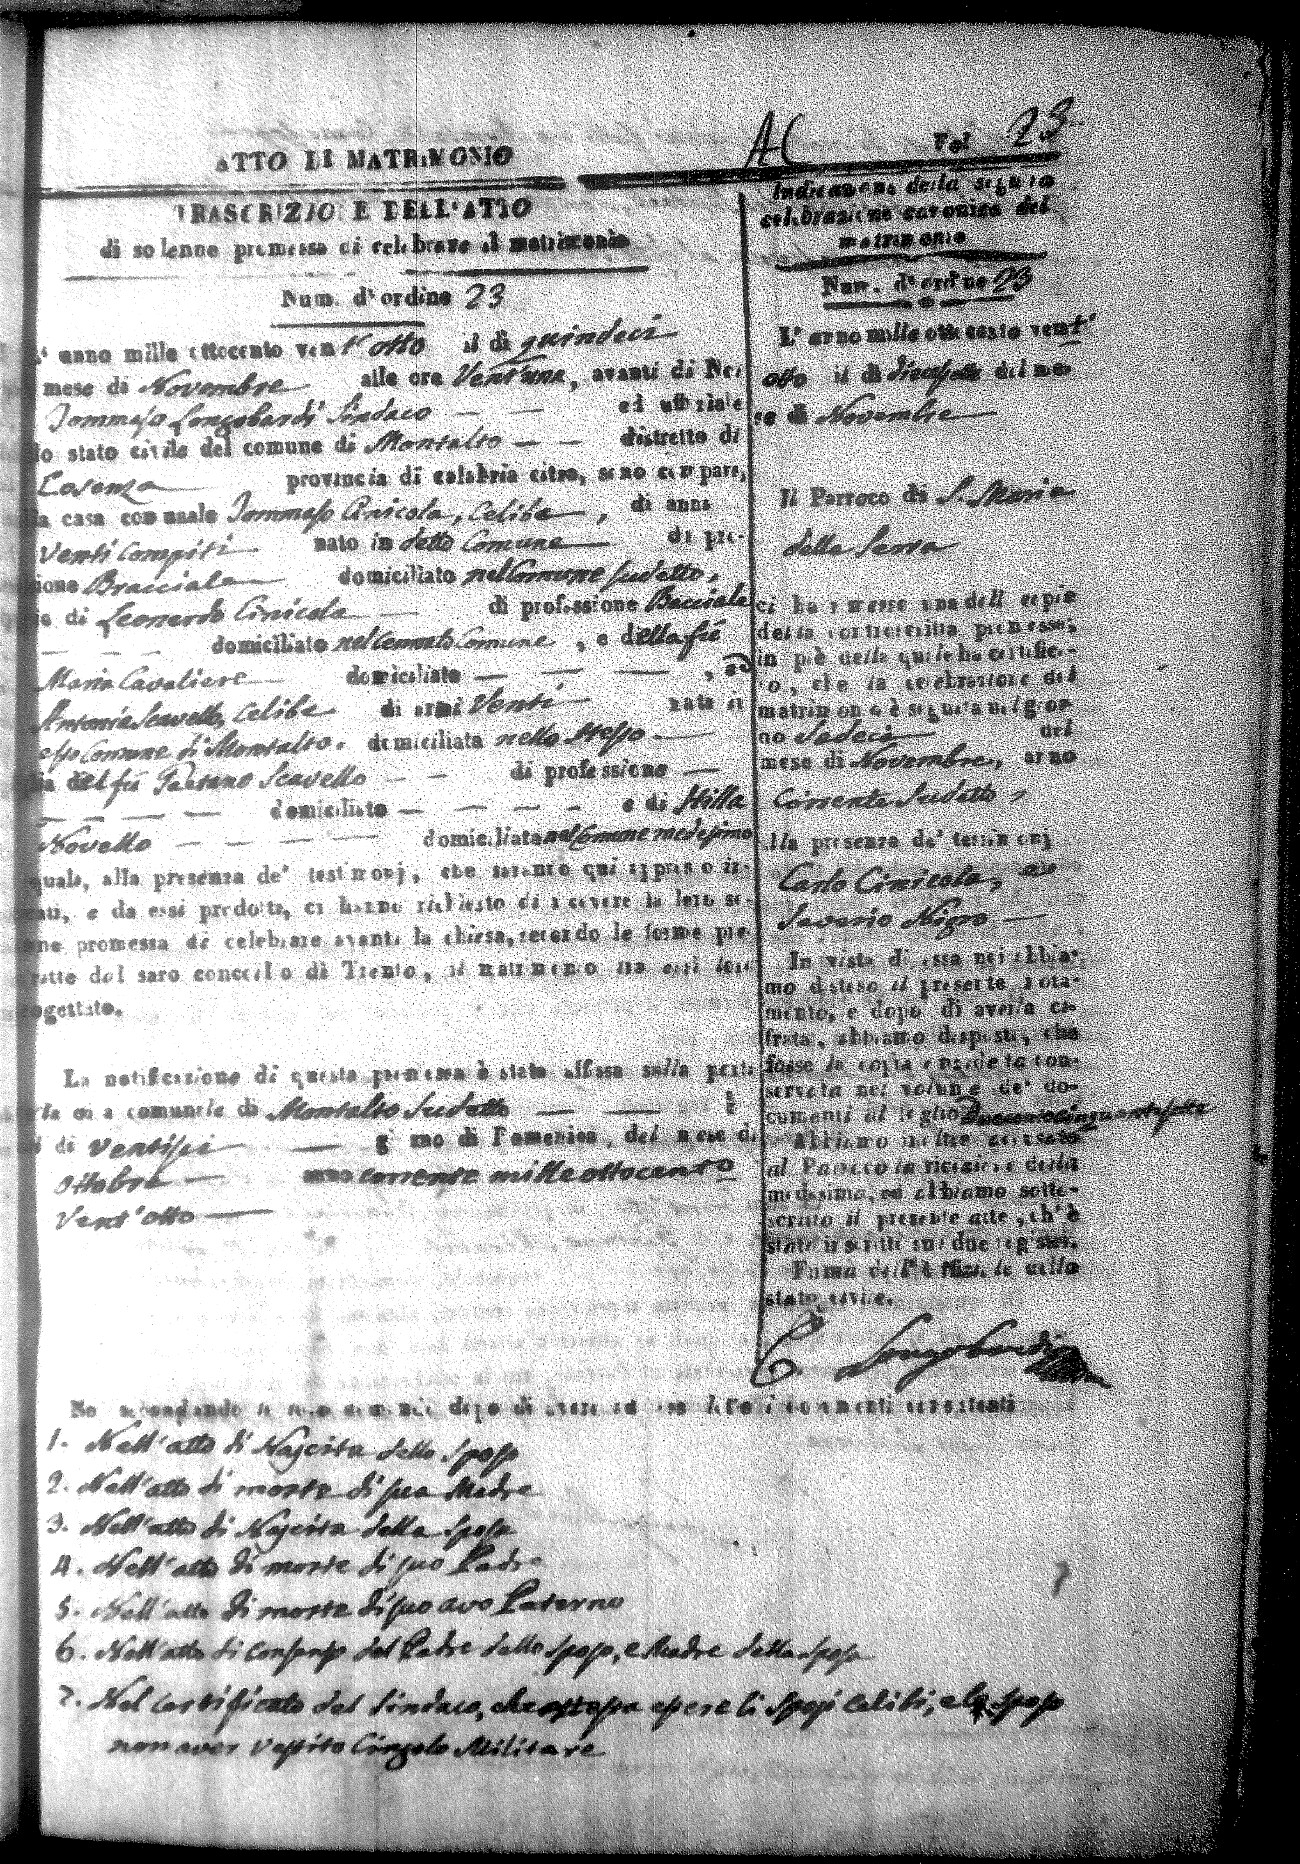 ATTO DI MATRIMONIO
AC Fol 23
TRASCRIZIONE DELL'ATTO
di solenne promessa di celebrare il matrimonio
Num. d'ordine 23
L' anno mille ottocento vent'otto il di quindeci
mese di Novembre alle ore Vent'una, avanti di Noi
Tommaso Longobardi Sindaco — — ed uffiziale
lo stato civile del comune di Montalto — — distretto di
Cosenza provincia di calabria citra, sono comparsi
la casa comunale Tommaso Cinicola, Celibe, di anni
Venti Compiti nato in detto Comune di pro-
ione Bracciale domiciliato nel Comune sudetto,
di Leonardo Cinicola — di professione Bacciale
— — — domiciliato nel cennato Comune, e della fù
Maria Cavaliere domiciliato — — —, ed
Antonia Scavello, Celibe di anni Venti nata in
esso Comune di Montalto. domiciliata nello stesso —
ia del fù Gaetano Scavello — — di professione —
— — — domiciliato — — — — e di Stilla
Novello — — — — domiciliata nel Comune medesimo
quali, alla presenza de' testimonj, che saranno qui appresso in-
ati, e da essi prodotti, ci hanno richiesto di ricevere la loro so-
ne promessa di celebrare avanti la chiesa, secondo le forme pre
ritte dal sacro concilio di Trento, il matrimonio tra essi loro
ogettato.
La notificazione di questa promessa è stata affissa sulla porta
della casa comunale di Montalto Sudetto — — —
di di Ventisei — — giorno di Domenica, del mese di
Ottobre — anno corrente mille ottocento
Vent'otto —
Indicazione della seguita
celebrazione canonica del
matrimonio
Num. d'ordine 23
L' anno mille ottocento vent'
otto il di diecisette del me-
se di Novembre —
Il Parroco di S. Maria
della Serra
ci ha rimesso una delle copie
della controscritta promessa,
in piè della quale ha certifica-
to, che la celebrazione del
matrimonio è seguita nel gior-
no Sedeci del
mese di Novembre, anno
Corrente Sudetto,
alla presenza de' testimonj
Carlo Cinicola, e
Saverio Nigro —
In vista di essa noi abbia-
mo disteso il presente nota-
mento, e dopo di averla ci-
frata, abbiamo disposto, che
fosse la copia anzidetta con-
servata nel volume de' do-
cumenti al foglio Duecentocinquantasette
abbiamo inoltre accusato
al Parroco la ricezione della
medesima, ed abbiamo sotto-
scritto il presente atto, ch'è
stato inscritto sui due registri.
Firma dell'Uffiziale dello
stato civile.
Longobardi
1. Nell'atto di Nascita dello sposo
2. Nell'atto di morte di sua Madre
3. Nell'atto di Nascita della sposa
4. Nell'atto di morte di suo Padre
5. Nell'atto di morte di suo avo Paterno
6. Nell'atto di Consenso del Padre dello sposo, e Madre della sposa
7. Nel certificato del Sindaco, che attesta essere li sposi Celibi, e lo sposo
non aver vestito Cingolo Militare